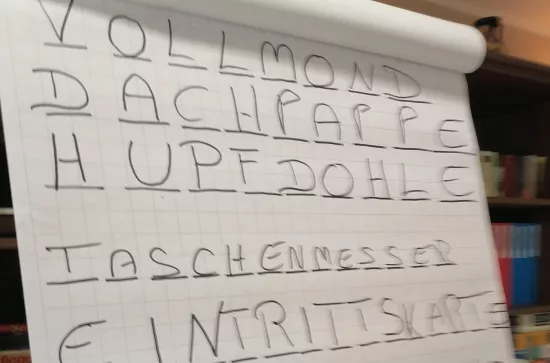 VOLLMOND
DACHPAPPE
HUPFDOHLE
TASCHENMESSER
EINTRITTSKARTE